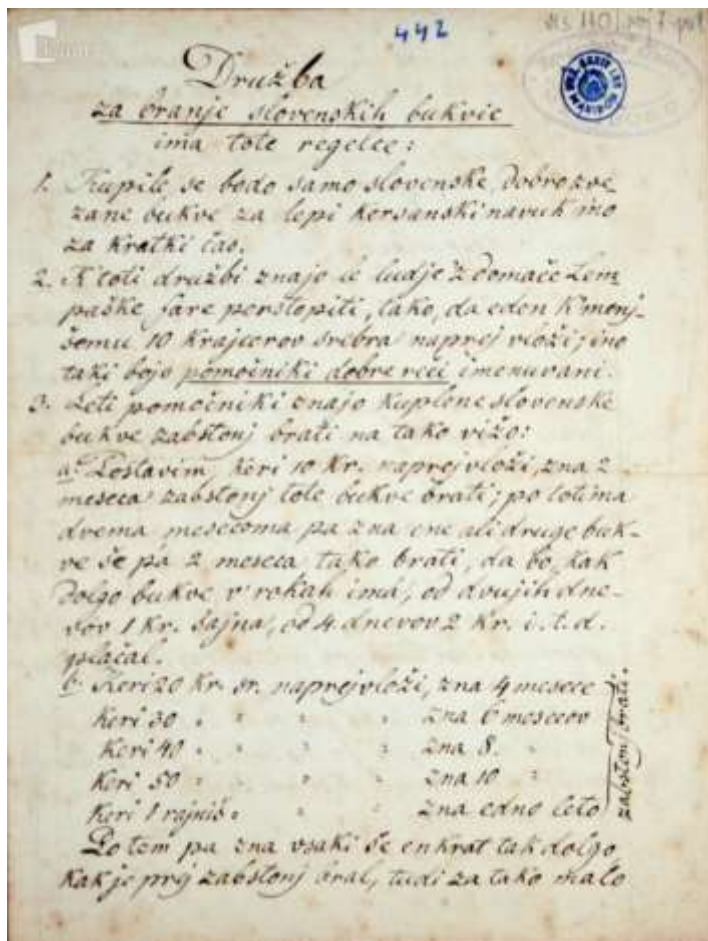 442
Družba
za branje slovenskih bukvic
ima tote regelce:
1. Kupile se bodo samo slovenske, dobro zve
zane bukve za lepi keršanski navuk ino
za kratki čas.
2. K toti družbi znajo le ludje z domače Lem
paške fare perstopiti, tako, da eden K'menj-
šemu 10 Krajcerov srebra naprej vloži, ino
taki bojo pomočniki dobre reči imenuvani.
3. Leti pomočniki znajo kuplene slovenske
bukve zabstonj brati na tako vižo:
a. Postavim, keri 10 Kr. naprej vloži, zna 2
meseca zabstonj tote bukve brati; po totima
dvema mesecoma pa zna ene ali druge buk-
ve še pa 2 meseca tako brati, da bo, kak
dolgo bukve v' rokah imá, od dvujih dne-
vov 1 Kr. šajna, od 4 dnevov 2 Kr. i.t.d.
plačal.
b. Keri 20 Kr. sr. naprej vloži, zna 4 mesece
Keri 30 " " " " zna 6 mesecov
Keri 40 " " " " zna 8. "
Keri 50 " " " " zna 10 "
Keri 1 rajniš " " " zna edno leto
zabstonj brati.
Po tem pa zna vsaki še enkrat tak dolgo
Kak je prej zabstonj bral, tudi za tako malo